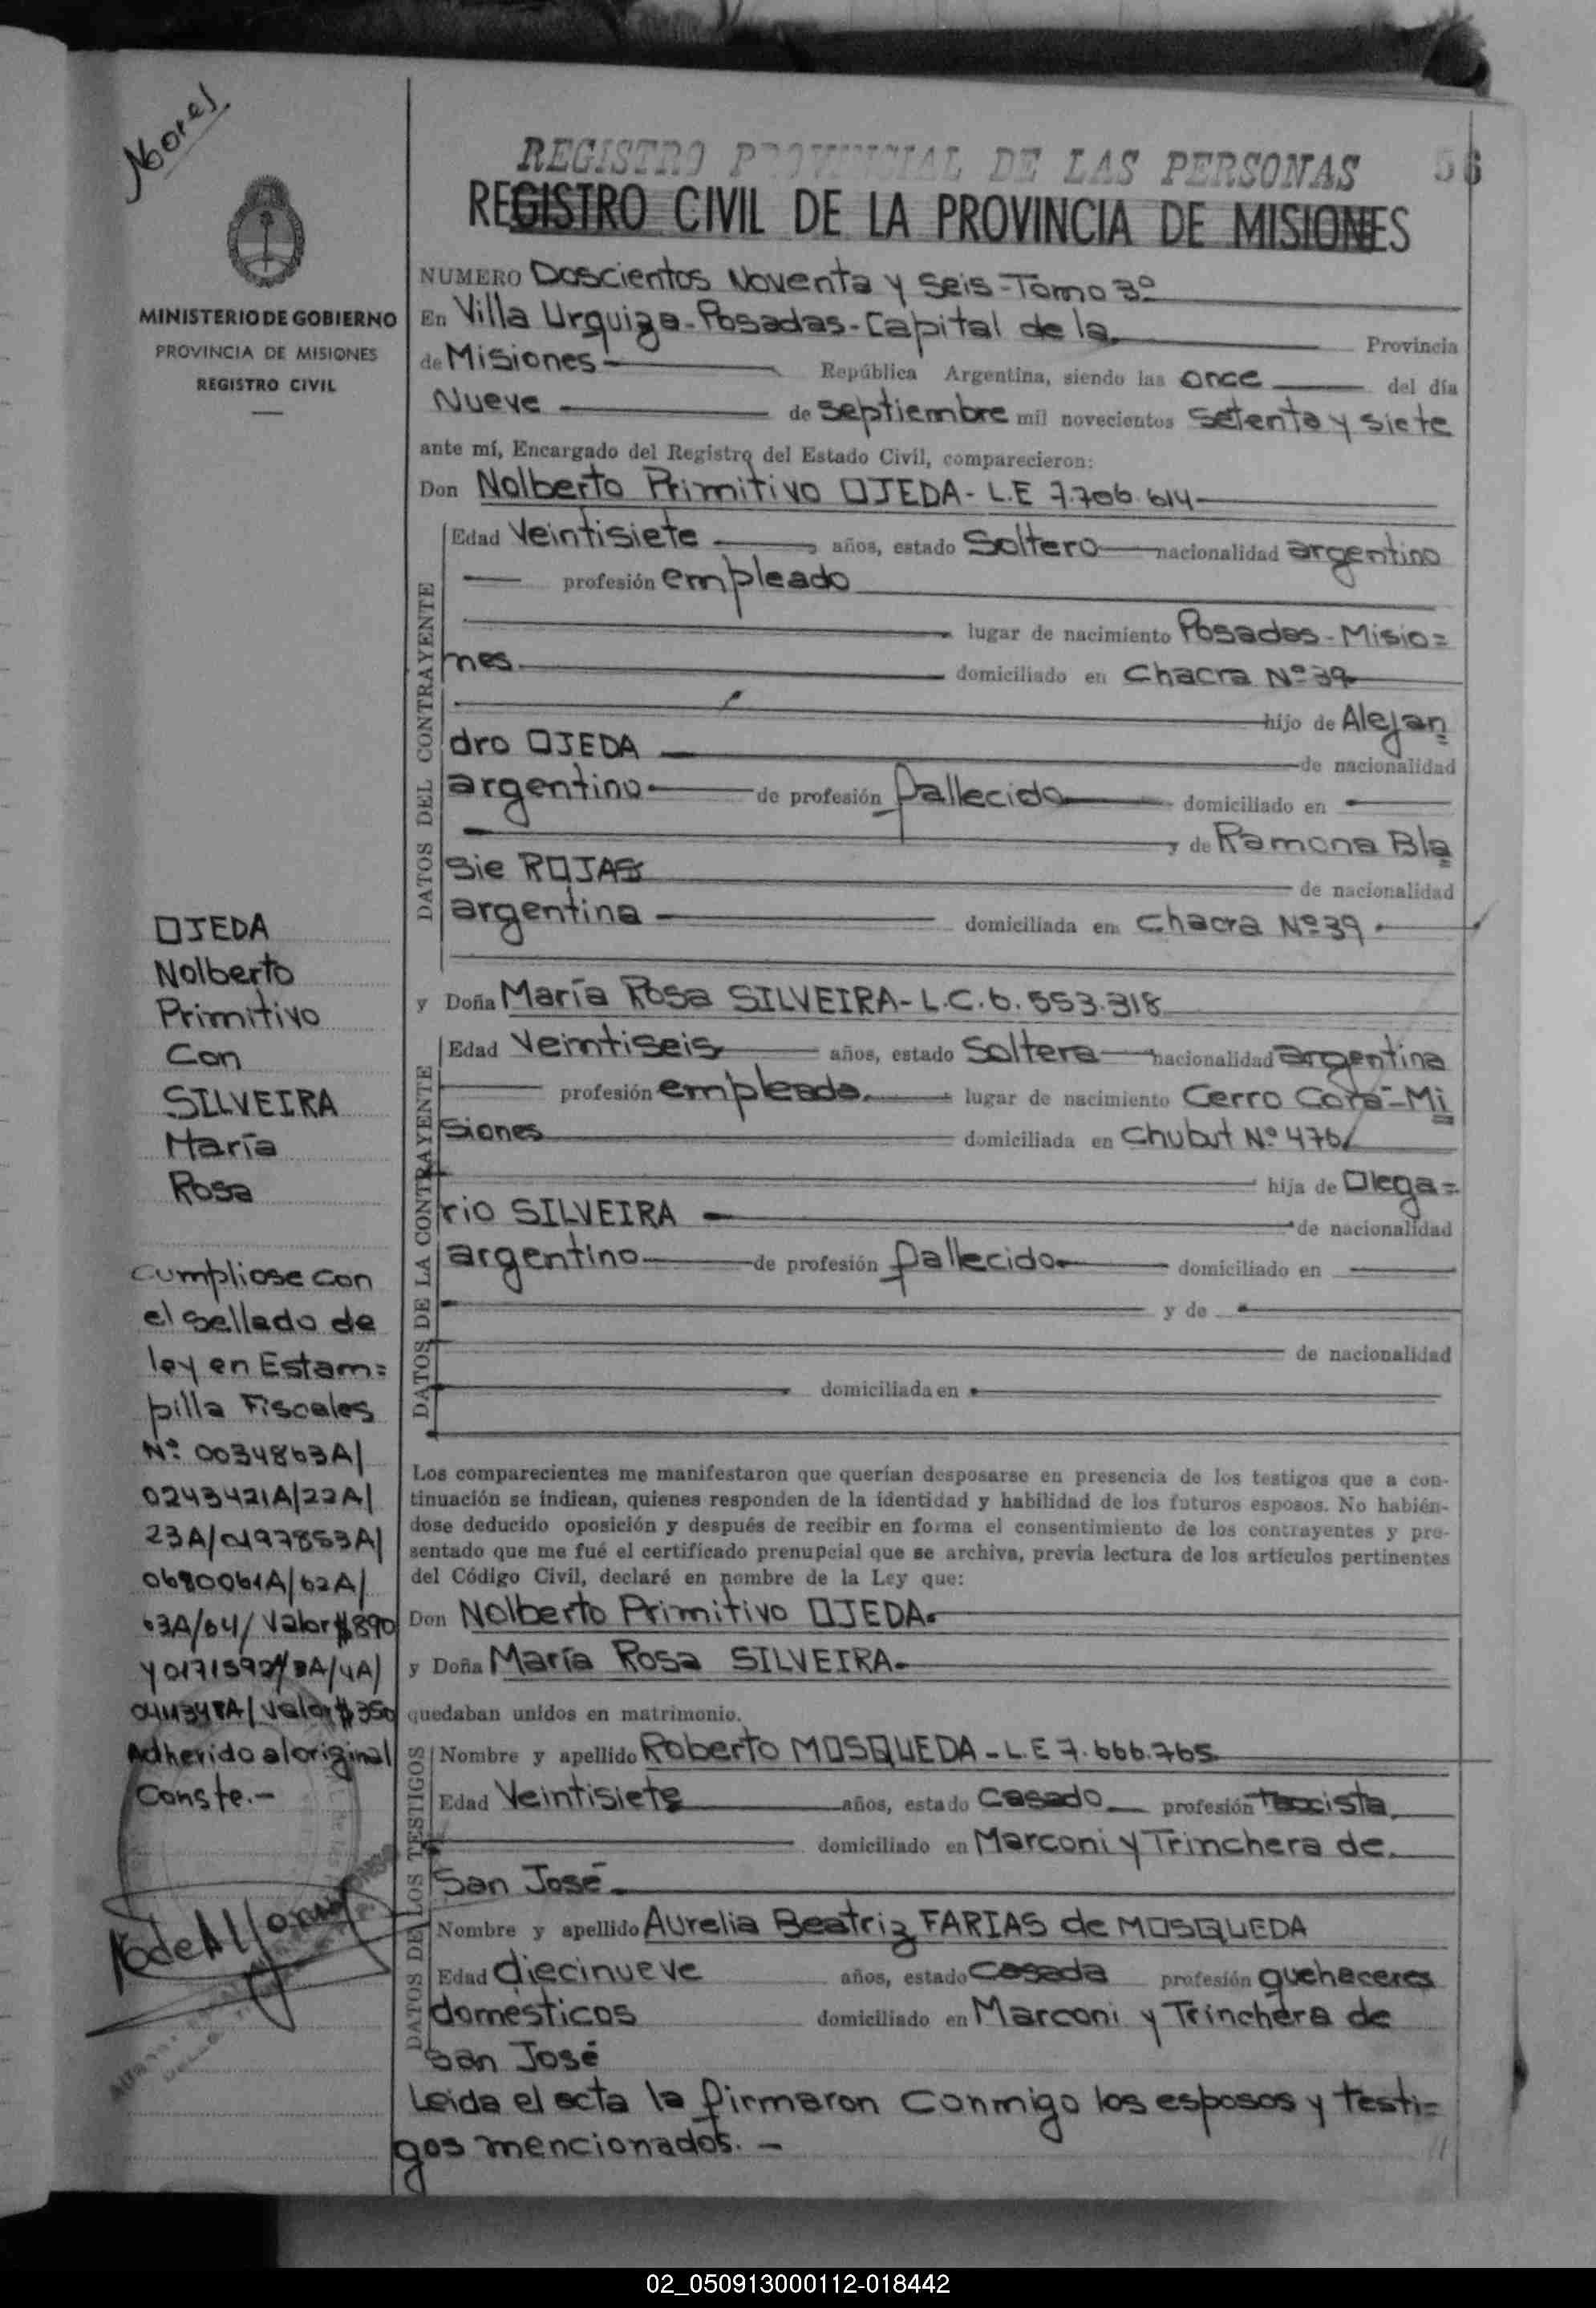 Nores
REGISTRO PROVINCIAL DE LAS PERSONAS 56
REGISTRO CIVIL DE LA PROVINCIA DE MISIONES
MINISTERIO DE GOBIERNO
PROVINCIA DE MISIONES
REGISTRO CIVIL
NUMERO Doscientos Noventa y Seis-Tomo 3º
En Villa Urquiza-Posadas-Capital de la Provincia
de Misiones República Argentina, siendo las once del día
Nueve de septiembre mil novecientos setenta y siete
ante mí, Encargado del Registro del Estado Civil, comparecieron:
Don Nolberto Primitivo OJEDA- L.E 7.706.614
DATOS DEL CONTRAYENTE
Edad Veintisiete años, estado Soltero nacionalidad argentino
profesión empleado
lugar de nacimiento Posadas-Misio=
nes domiciliado en Chacra Nº39
hijo de Alejan
dro OJEDA de nacionalidad
argentino de profesión fallecido domiciliado en
y de Ramona Bla
sie ROJAS de nacionalidad
argentina domiciliada en Chacra Nº39
y Doña María Rosa SILVEIRA-L.C.6.553.318
DATOS DE LA CONTRAYENTE
Edad Veintiseis años, estado Soltera nacionalidad argentina
profesión empleada lugar de nacimiento Cerro Corá-Mi
siones domiciliada en Chubut Nº 476
hija de Olega=
rio SILVEIRA de nacionalidad
argentino de profesión fallecido domiciliado en
y de
de nacionalidad
domiciliada en
OJEDA
Nolberto
Primitivo
Con
SILVEIRA
María
Rosa
Cumpliose con
el sellado de
ley en Estam=
pilla Fiscales
Nº 0034863A/
0243421A/22A/
23A/0197853A/
0680061A/62A/
63A/64/ Valor $890
Valor $350
Adherido al original
Conste.-
Los comparecientes me manifestaron que querían desposarse en presencia de los testigos que a con-
tinuación se indican, quienes responden de la identidad y habilidad de los futuros esposos. No habién-
dose deducido oposición y después de recibir en forma el consentimiento de los contrayentes y pre-
sentado que me fué el certificado prenupcial que se archiva, previa lectura de los artículos pertinentes
del Código Civil, declaré en nombre de la Ley que:
Don Nolberto Primitivo OJEDA.
y Doña María Rosa SILVEIRA.
quedaban unidos en matrimonio.
DATOS DE LOS TESTIGOS
Nombre y apellido Roberto MOSQUEDA-L.E 7.666.765
Edad Veintisiete años, estado Casado profesión taxista
domiciliado en Marconi y Trinchera de
San José
Nombre y apellido Aurelia Beatriz FARIAS de MOSQUEDA
Edad diecinueve años, estado casada profesión quehaceres
domésticos domiciliado en Marconi y Trinchera de
San José
Leida el acta la firmaron conmigo los esposos y testi=
gos mencionados. -
02_050913000112-018442